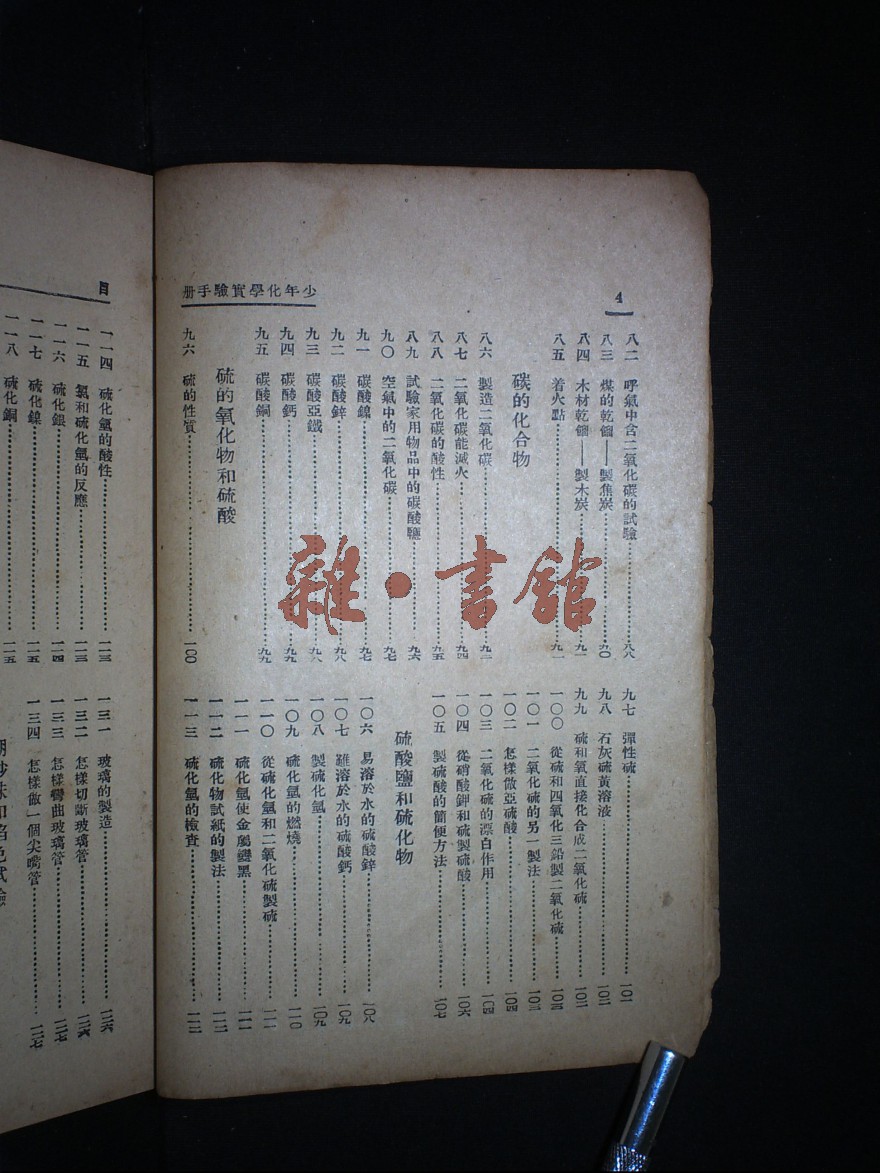 少年化學實驗手册
4
八二 呼氣中含二氧化碳的試驗……八八
八三 煤的乾餾——製焦炭……九〇
八四 木材乾餾——製木炭……九一
八五 着火點……九一
碳的化合物
八六 製造二氧化碳……九二
八七 二氧化碳能滅火……九四
八八 二氧化碳的酸性……九五
八九 試驗家用物品中的碳酸鹽……九六
九〇 空氣中的二氧化碳……九七
九一 碳酸鎳……九七
九二 碳酸鋅……九八
九三 碳酸亞鐵……九八
九四 碳酸鈣……九九
九五 碳酸銅……九九
硫的氧化物和硫酸
九六 硫的性質……一〇〇
九七 彈性硫……一〇一
九八 石灰硫黃溶液……一〇二
九九 硫和氧直接化合成二氧化硫……一〇二
一〇〇 從硫和四氧化三鉛製二氧化硫……一〇三
一〇一 二氧化硫的另一製法……一〇三
一〇二 怎樣做亞硫酸……一〇四
一〇三 二氧化硫的漂白作用……一〇四
一〇四 從硝酸鉀和硫製硫酸……一〇六
一〇五 製硫酸的簡便方法……一〇七
硫酸鹽和硫化物
一〇六 易溶於水的硫酸鋅……一〇八
一〇七 難溶於水的硫酸鈣……一〇九
一〇八 製硫化氫……一〇九
一〇九 硫化氫的燃燒……一一〇
一一〇 從硫化氫和二氧化硫製硫……一一一
一一一 硫化氫使金屬變黑……一一一
一一二 硫化物試紙的製法……一一二
一一三 硫化氫的檢查……一一二
目
一一四 硫化氫的酸性……一一三
一一五 氯和硫化氫的反應……一一三
一一六 硫化銀……一一四
一一七 硫化鎳……一一五
一一八 硫化銅……一一五
一三一 玻璃的製造……一二六
一三二 怎樣切斷玻璃管……一二六
一三三 怎樣彎曲玻璃管……一二七
一三四 怎樣做一個尖嘴管……一二七
砂珠和焰色試驗
雜·書館